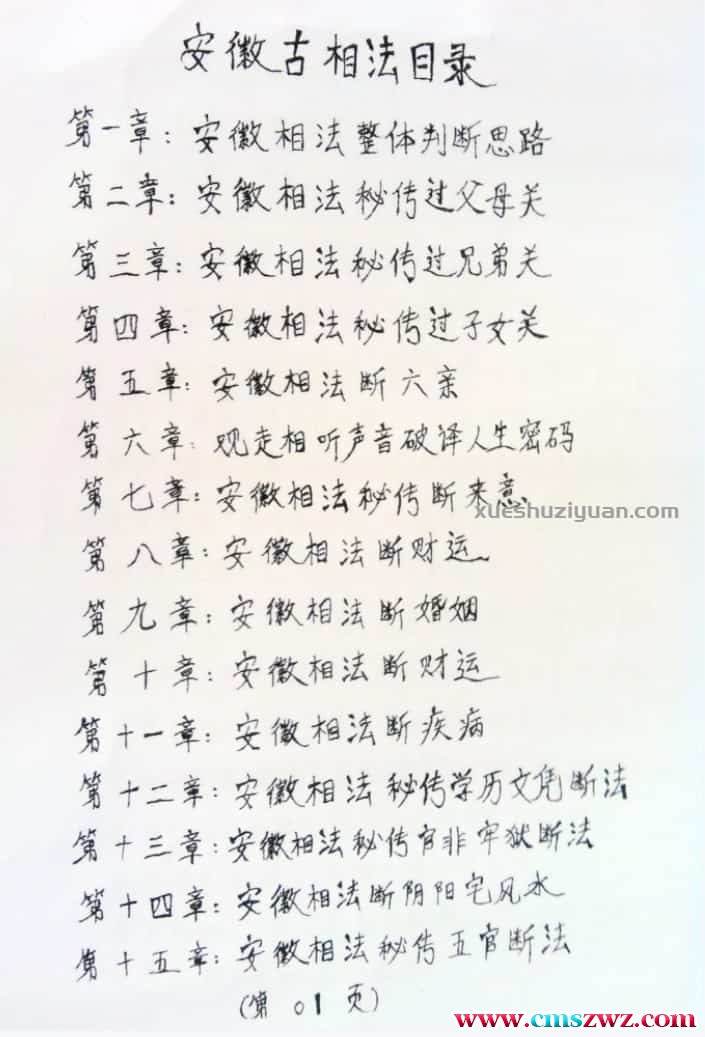 安徽古相法目录
第一章：安徽相法整体判断思路
第二章：安徽相法秘传过父母关
第三章：安徽相法秘传过兄弟关
第四章：安徽相法秘传过子女关
第五章：安徽相法断六亲
第六章：观走相听声音破译人生密码
第七章：安徽相法秘传断来意
xueshuziyuan.com
第八章：安徽相法断财运
第九章：安徽相法断婚姻
第十章：安徽相法断财运
第十一章：安徽相法断疾病
第十二章：安徽相法秘传学历文凭断法
第十三章：安徽相法秘传官非牢狱断法
第十四章：安徽相法断阴阳宅风水
第十五章：安徽相法秘传五官断法
(第 01 页)
www.cmszwz.com